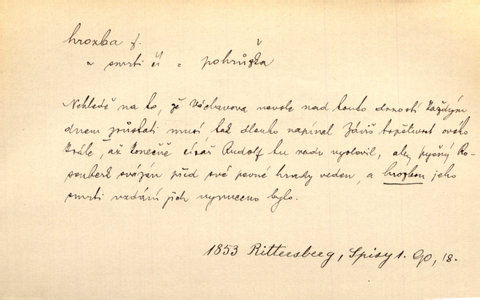 hrozba f.
a smrti čí = pohrůžka
Nehledě na to, že Václavova nevole nad touto drzostí každým
dnem růsti musí tak dlouho napínal Záviš trpělivost svého
krále, až konečně císař Rudolf tu radu vyslovil, aby pyšný Ro-
senberk svázán před své pevné hrady veden, a hrozbou jeho
smrti vzdání jich vynuceno bylo.
1853 Rittersberg, Spisy 1. 90, 18.